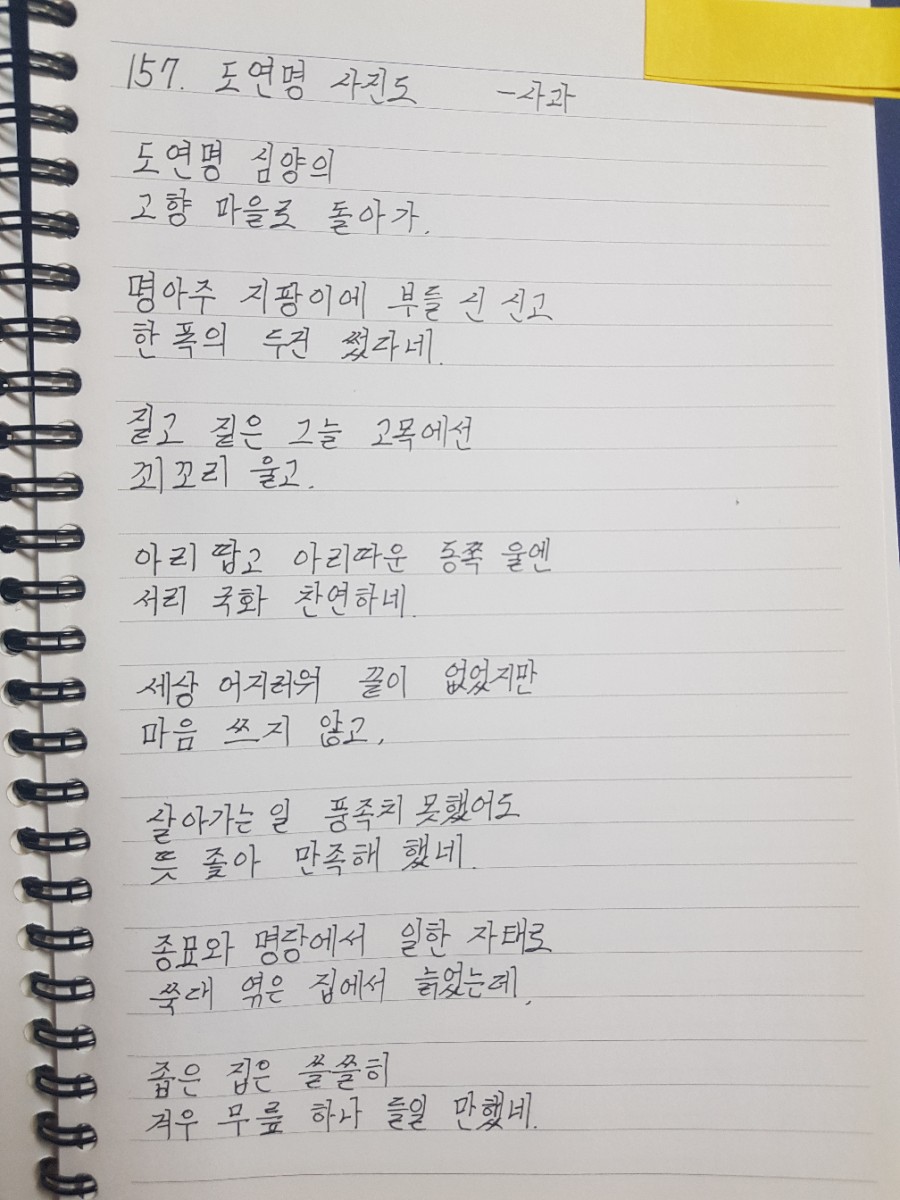 157. 도연명 사진도 -사과
도연명 심양의
고향 마을로 돌아가.
명아주 지팡이에 부들 신 신고
한 폭의 두건 썼다네.
짙고 짙은 그늘 고목에선
꾀꼬리 울고.
아리땁고 아리따운 동쪽 울엔
서리 국화 찬연하네.
세상 어지러워 끝이 없었지만
마음 쓰지 않고,
살아가는 일 풍족치 못했어도
뜻 좇아 만족해 했네.
종묘와 명당에서 일한 자태로
쑥대 엮은 집에서 늙었는데,
좁은 집은 쓸쓸히
겨우 무릎 하나 들일 만했네.